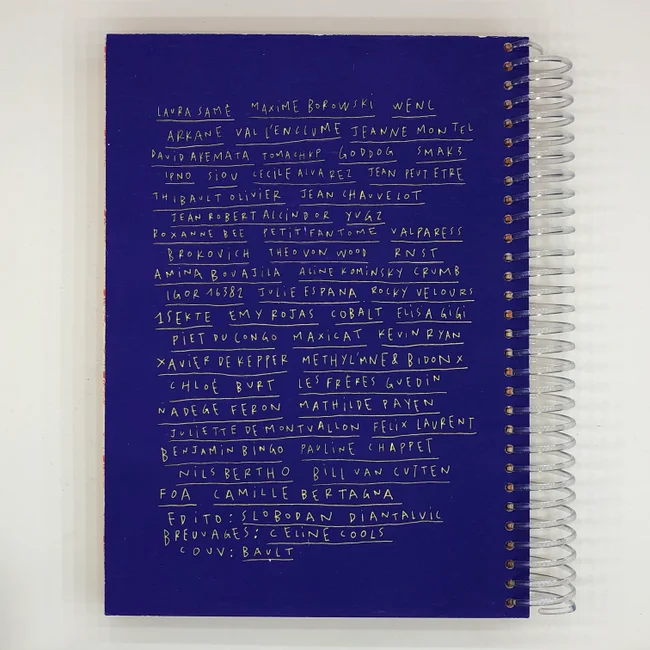 LAURA SAMÉ MAXIME BOROWSKI WENC
ARKANE VAL L'ENCLUME JEANNE MONTEL
DAVID APEMATA TOMACHUP GODDOG SMAK3
IPNO SIOU CECILE ALVAREZ JEAN PEUT ETRE
THIBAULT OLIVIER JEAN CHAUVELOT
JEAN ROBERT ALCINDOR YUGZ
ROXANNE BEE PETIT FANTOME VALPARESS
BROKOVICH THEO VON WOOD RNST
AMINA BOUAJILA ALINE KOMINSKY CRUMB
IGOR 16382 JULIE ESPANA ROCKY VELOURS
1SEKTE EMY ROJAS COBALT ELISA GIGI
PIET DU CONGO MAXICAT KEVIN RYAN
XAVIER DE KEPPER METHYL'MNE & BIDON X
CHLOÉ BURT LES FRÈRES GUEDIN
NADEGE FERON MATHILDE PAYEN
JULIETTE DE MONTVALLON FELIX LAURENT
BENJAMIN BINGO PAULINE CHAPPET
NILS BERTHO BILL VAN CUTTEN
FOA CAMILLE BERTAGNA
EDITO: SLOBODAN DIANTALVIC
BREUVAGES: CELINE COOLS
COUV: BAULT